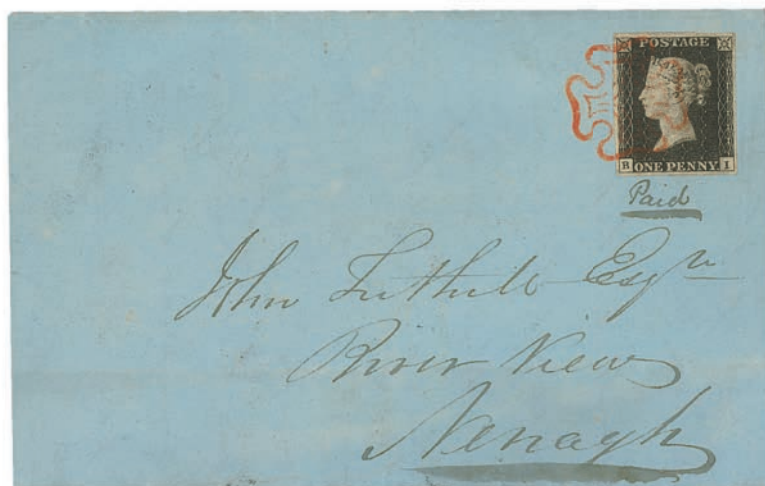 POSTAGE
B I
ONE PENNY
Paid
John Tuthill Esqre
River View
Nenagh